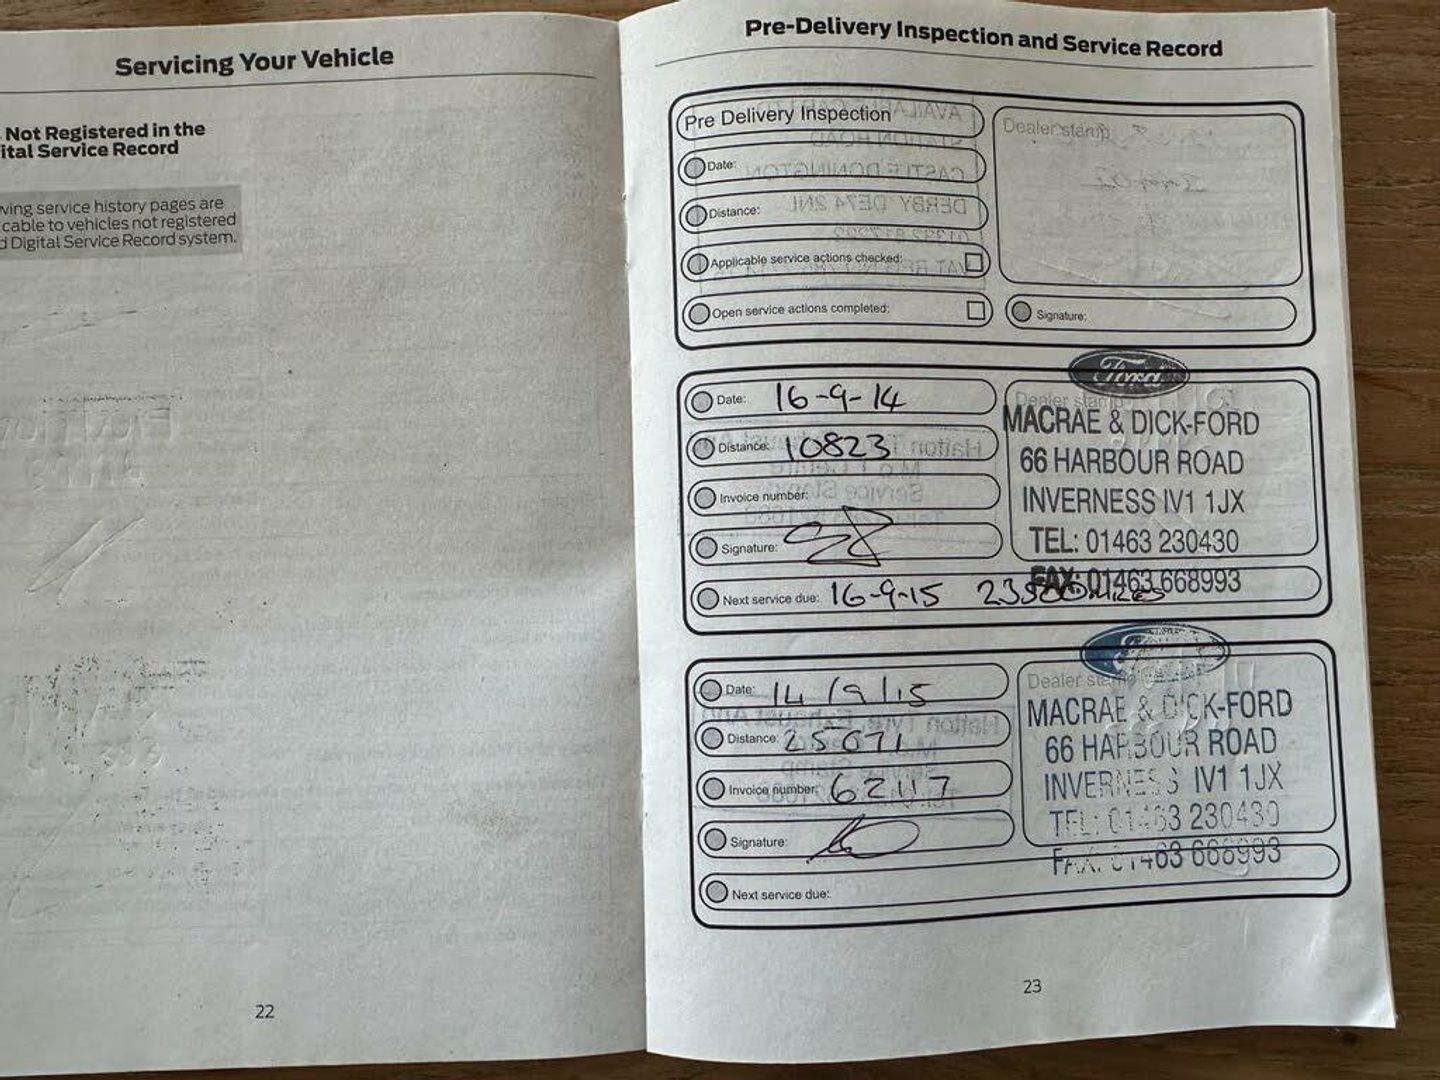 Servicing Your Vehicle
Not Registered in the
ital Service Record
ving service history pages are
cable to vehicles not registered
d Digital Service Record system.
22
Pre-Delivery Inspection and Service Record
Pre Delivery Inspection
Date:
Distance:
Applicable service actions checked:
Open service actions completed:
Dealer stamp
Signature:
Date: 16-9-14
Distance: 10823
Invoice number:
Signature:
Next service due: 16-9-15
Ford
Dealer stamp
MACRAE & DICK-FORD
66 HARBOUR ROAD
INVERNESS IV1 1JX
TEL: 01463 230430
FAX: 01463 668993
Date: 14/9/15
Distance: 25671
Invoice number: 62117
Signature:
Next service due:
Ford
Dealer stamp
MACRAE & DICK-FORD
66 HARBOUR ROAD
INVERNESS IV1 1JX
TEL: 01463 230430
FAX: 01463 668993
23